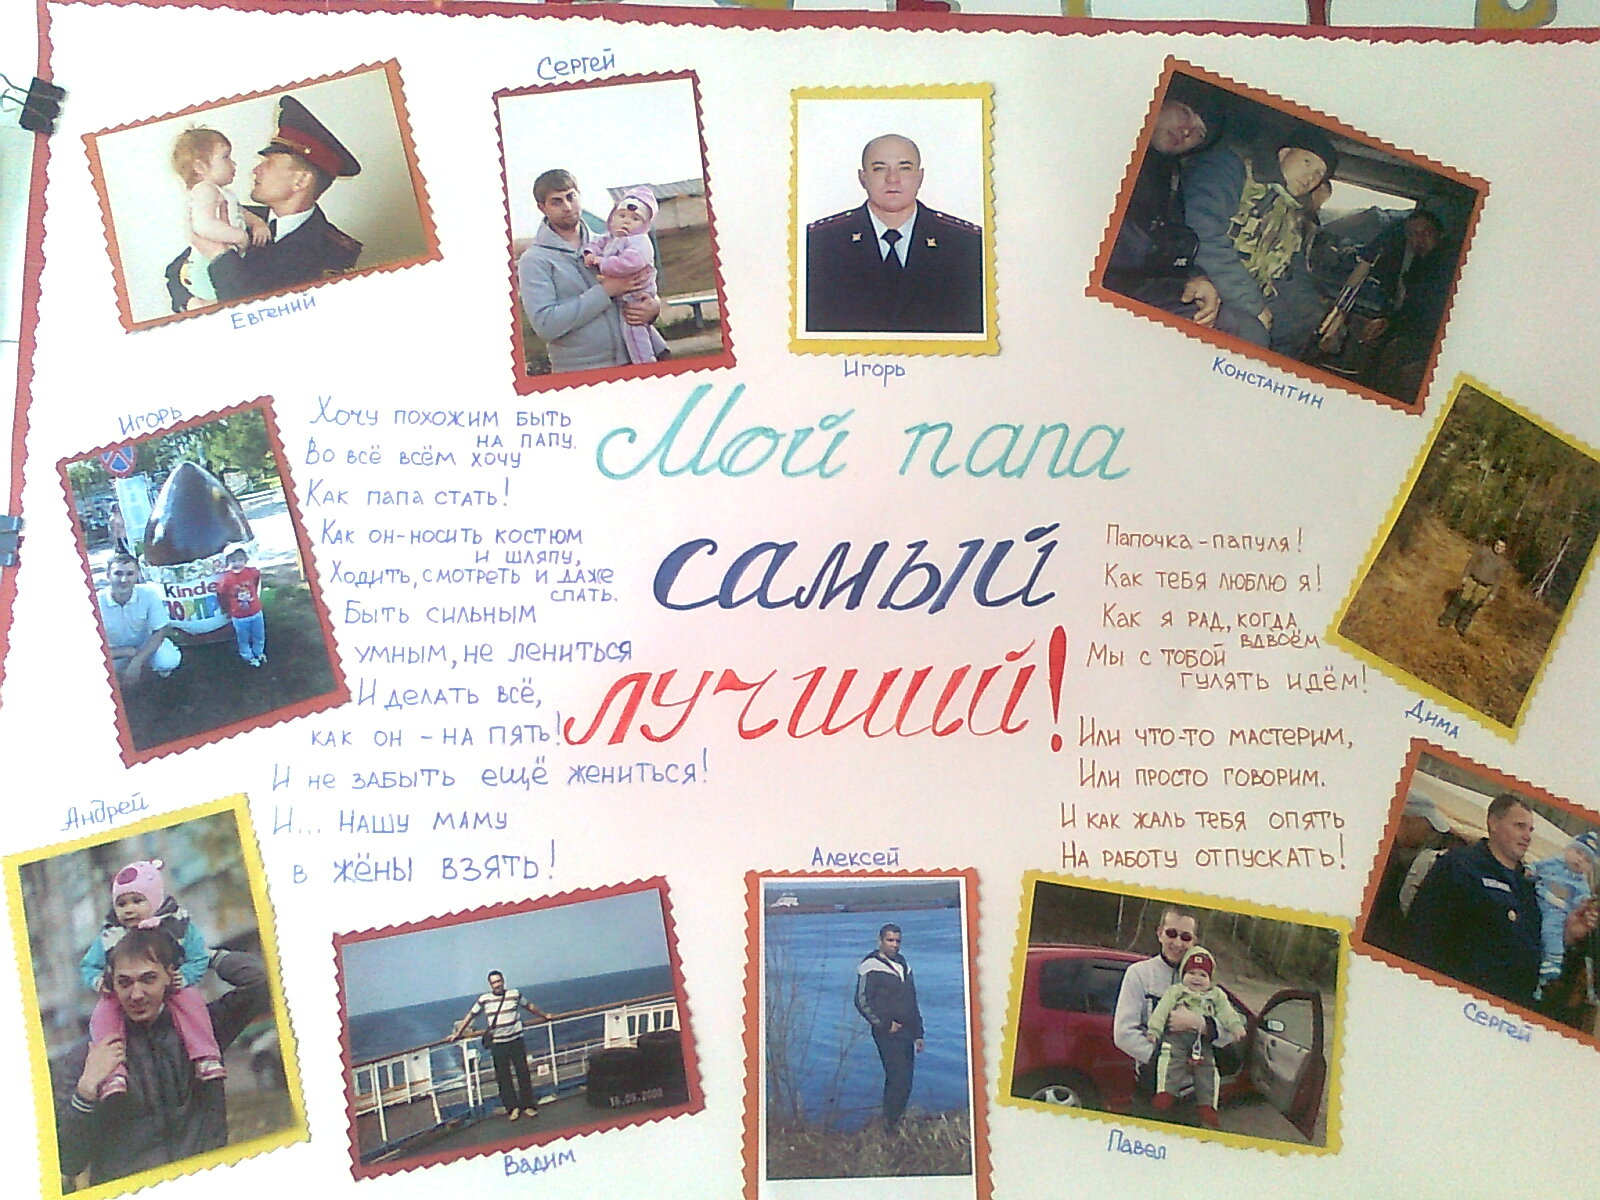 Сергей
Евгений
Игорь
Константин
Игорь
Хочу похожим быть
на папу.
Во всё всём хочу
Как папа стать!
Как он-носить костюм
и шляпу,
Ходить, смотреть и даже
спать.
Быть сильным
умным, не лениться
И делать всё,
как он - на пять!
И не забыть ещё жениться!
И... нашу маму
в жёны взять!
Мой папа
самый
лучший!
Папочка - папуля!
Как тебя люблю я!
Как я рад, когда
вдвоём
Мы с тобой
гулять идём!
Или что-то мастерим,
Или просто говорим.
И как жаль тебя опять
На работу отпускать!
Дима
Андрей
Алексей
Сергей
Вадим
Павел
Kinde
18.09.2008